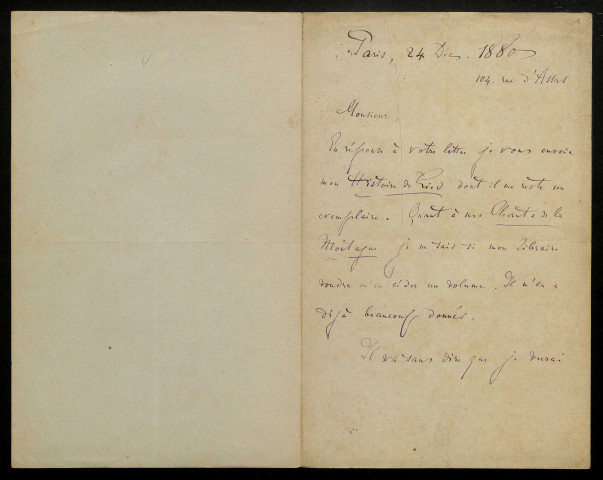 Paris, 24 Dec. 1880
104. rue d'Assas
Monsieur,
En réponse à votre lettre je vous envoie
mon Histoire du Lied dont il me reste un
exemplaire. Quant à mes Chants de la
Montagne je ne sais si mon libraire
voudra m'en céder un volume. Il m'en a
déjà beaucoup donnés.
Il va sans dire que je serai